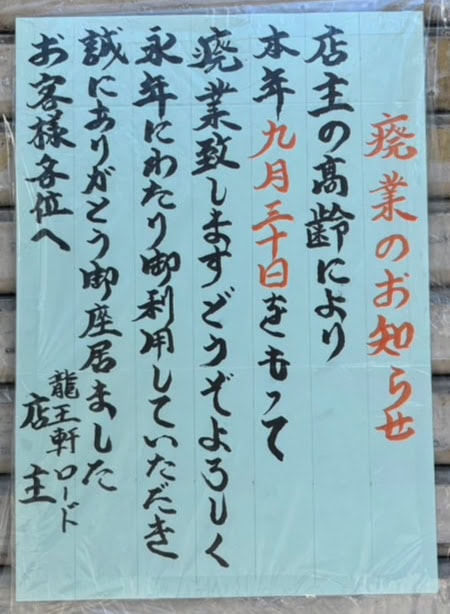 廃業のお知らせ
店主の高齢により
本年九月三十日をもって
廃業致しますどうぞよろしく
永年にわたり御利用していただき
誠にありがとう御座居ました
お客様各位へ
龍王軒ロード
店主